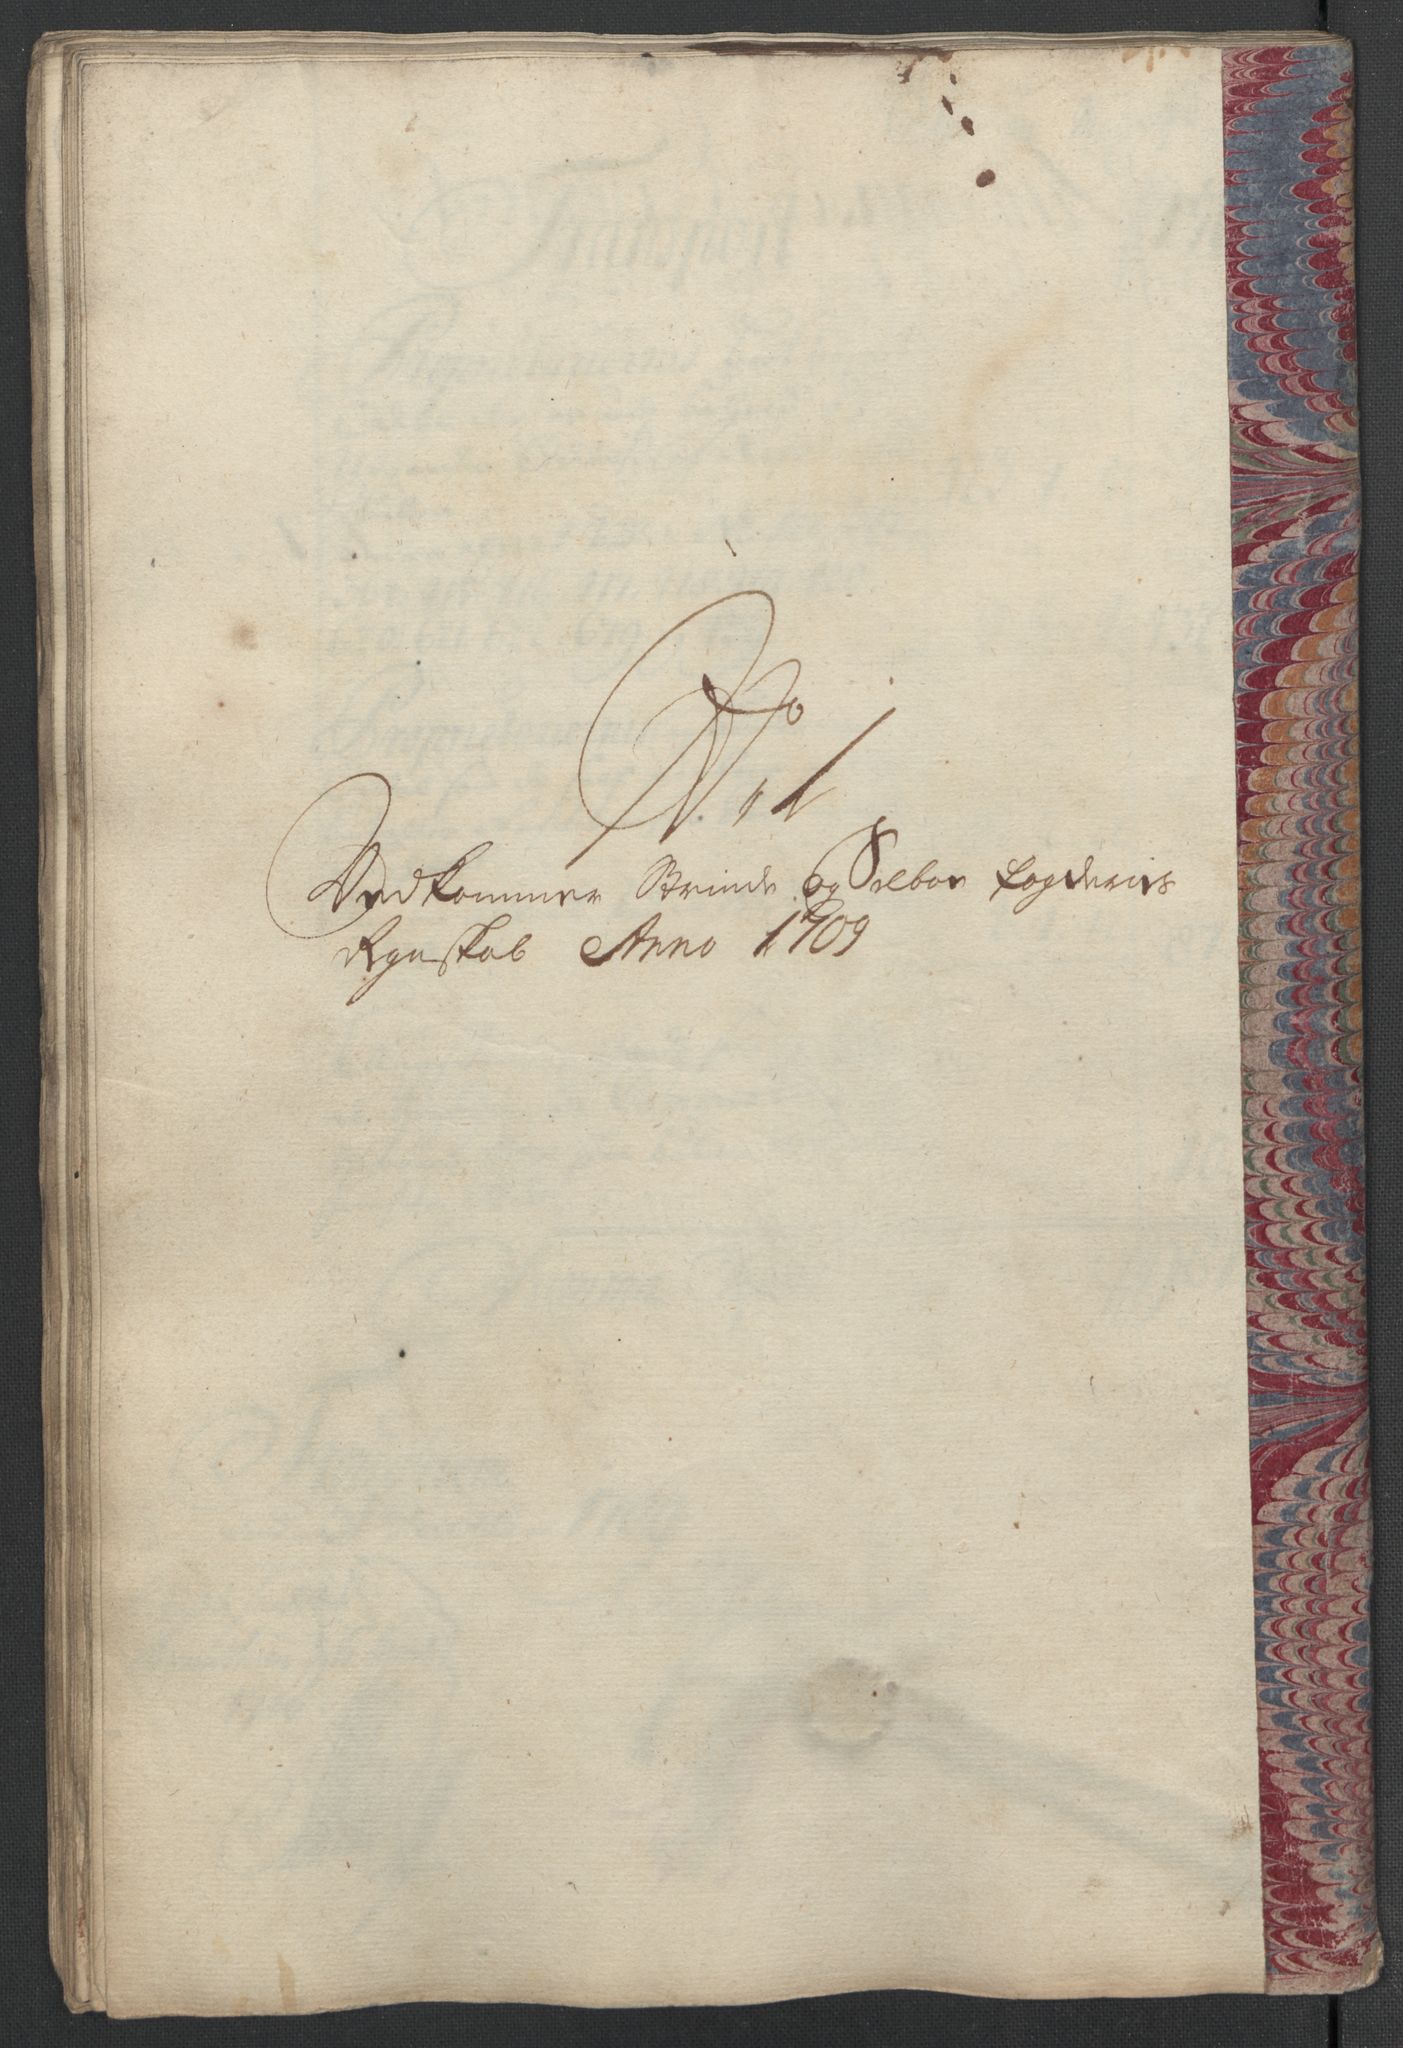 No 1
Vedkommer Strinde og Selboe fogderies
Regnskab Anno 1709